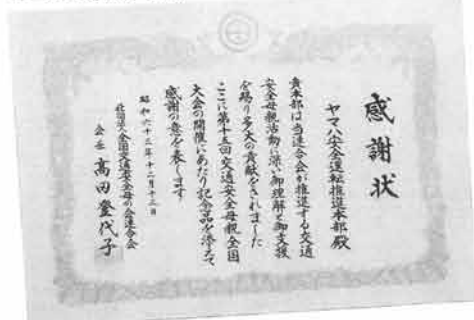 感謝状
ヤマハ安全運転推進本部殿
貴本部は当連合会が推進する交通
安全母親活動に深い御理解と御支援
を賜り多大の貢献をされました
ここに第十五回交通安全母親全国
大会の開催にあたり記念品を添えて
感謝の意を表します
昭和六十三年十二月十三日
社団法人全国交通安全母の会連合会
会長 高田登代子